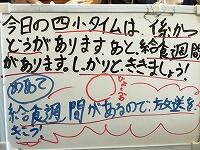 今日の四小タイムは、係かつ
どうがあります。あと、給食週間
があります。しっかりとききましょう!
めあて
給食週間があるので、放送を
きこう!